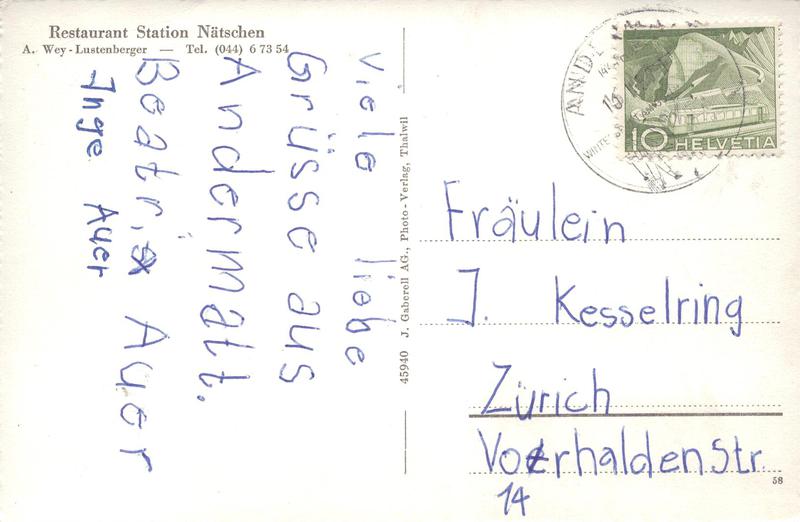 Restaurant Station Nätschen
A. Wey-Lustenberger — Tel. (044) 6 73 54
viele liebe
Grüsse aus
Andermatt.
Beatrix Auer
Inge Auer
45940 J. Gaberell AG., Photo-Verlag, Thalwil
10 HELVETIA
Fräulein
J. Kesselring
Zürich
Vorhaldenstr.
14
58